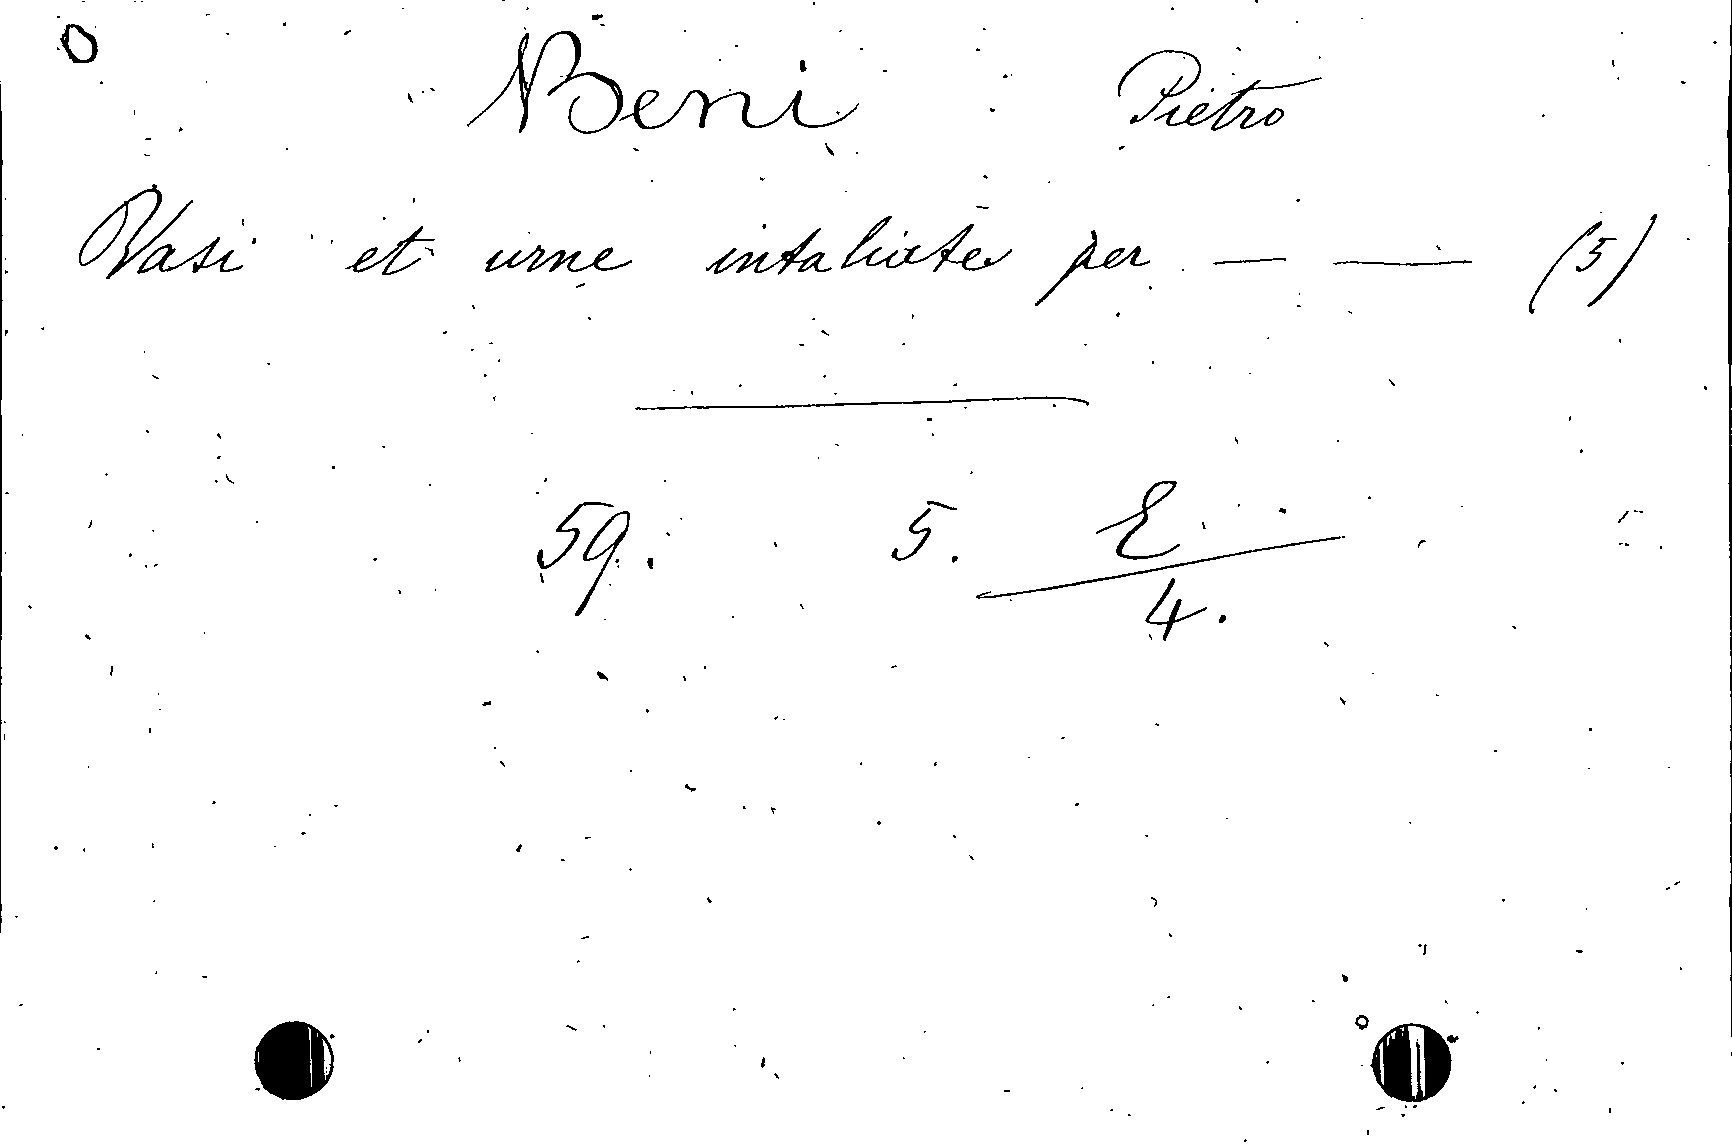 Beni Pietro
Vasi et urne intaliate per — — (5)
59. 5. E
4.